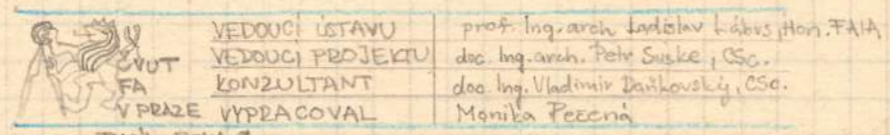 VEDOUCÍ ÚSTAVU prof. Ing. arch Ladislav Lábus, Hon. FAIA
ČVUT VEDOUCÍ PROJEKTU doc. Ing. arch. Petr Suske, CSc.
FA KONZULTANT doc. Ing. Vladimír Daňkovský, CSc.
V PRAZE VYPRACOVAL Monika Pečená